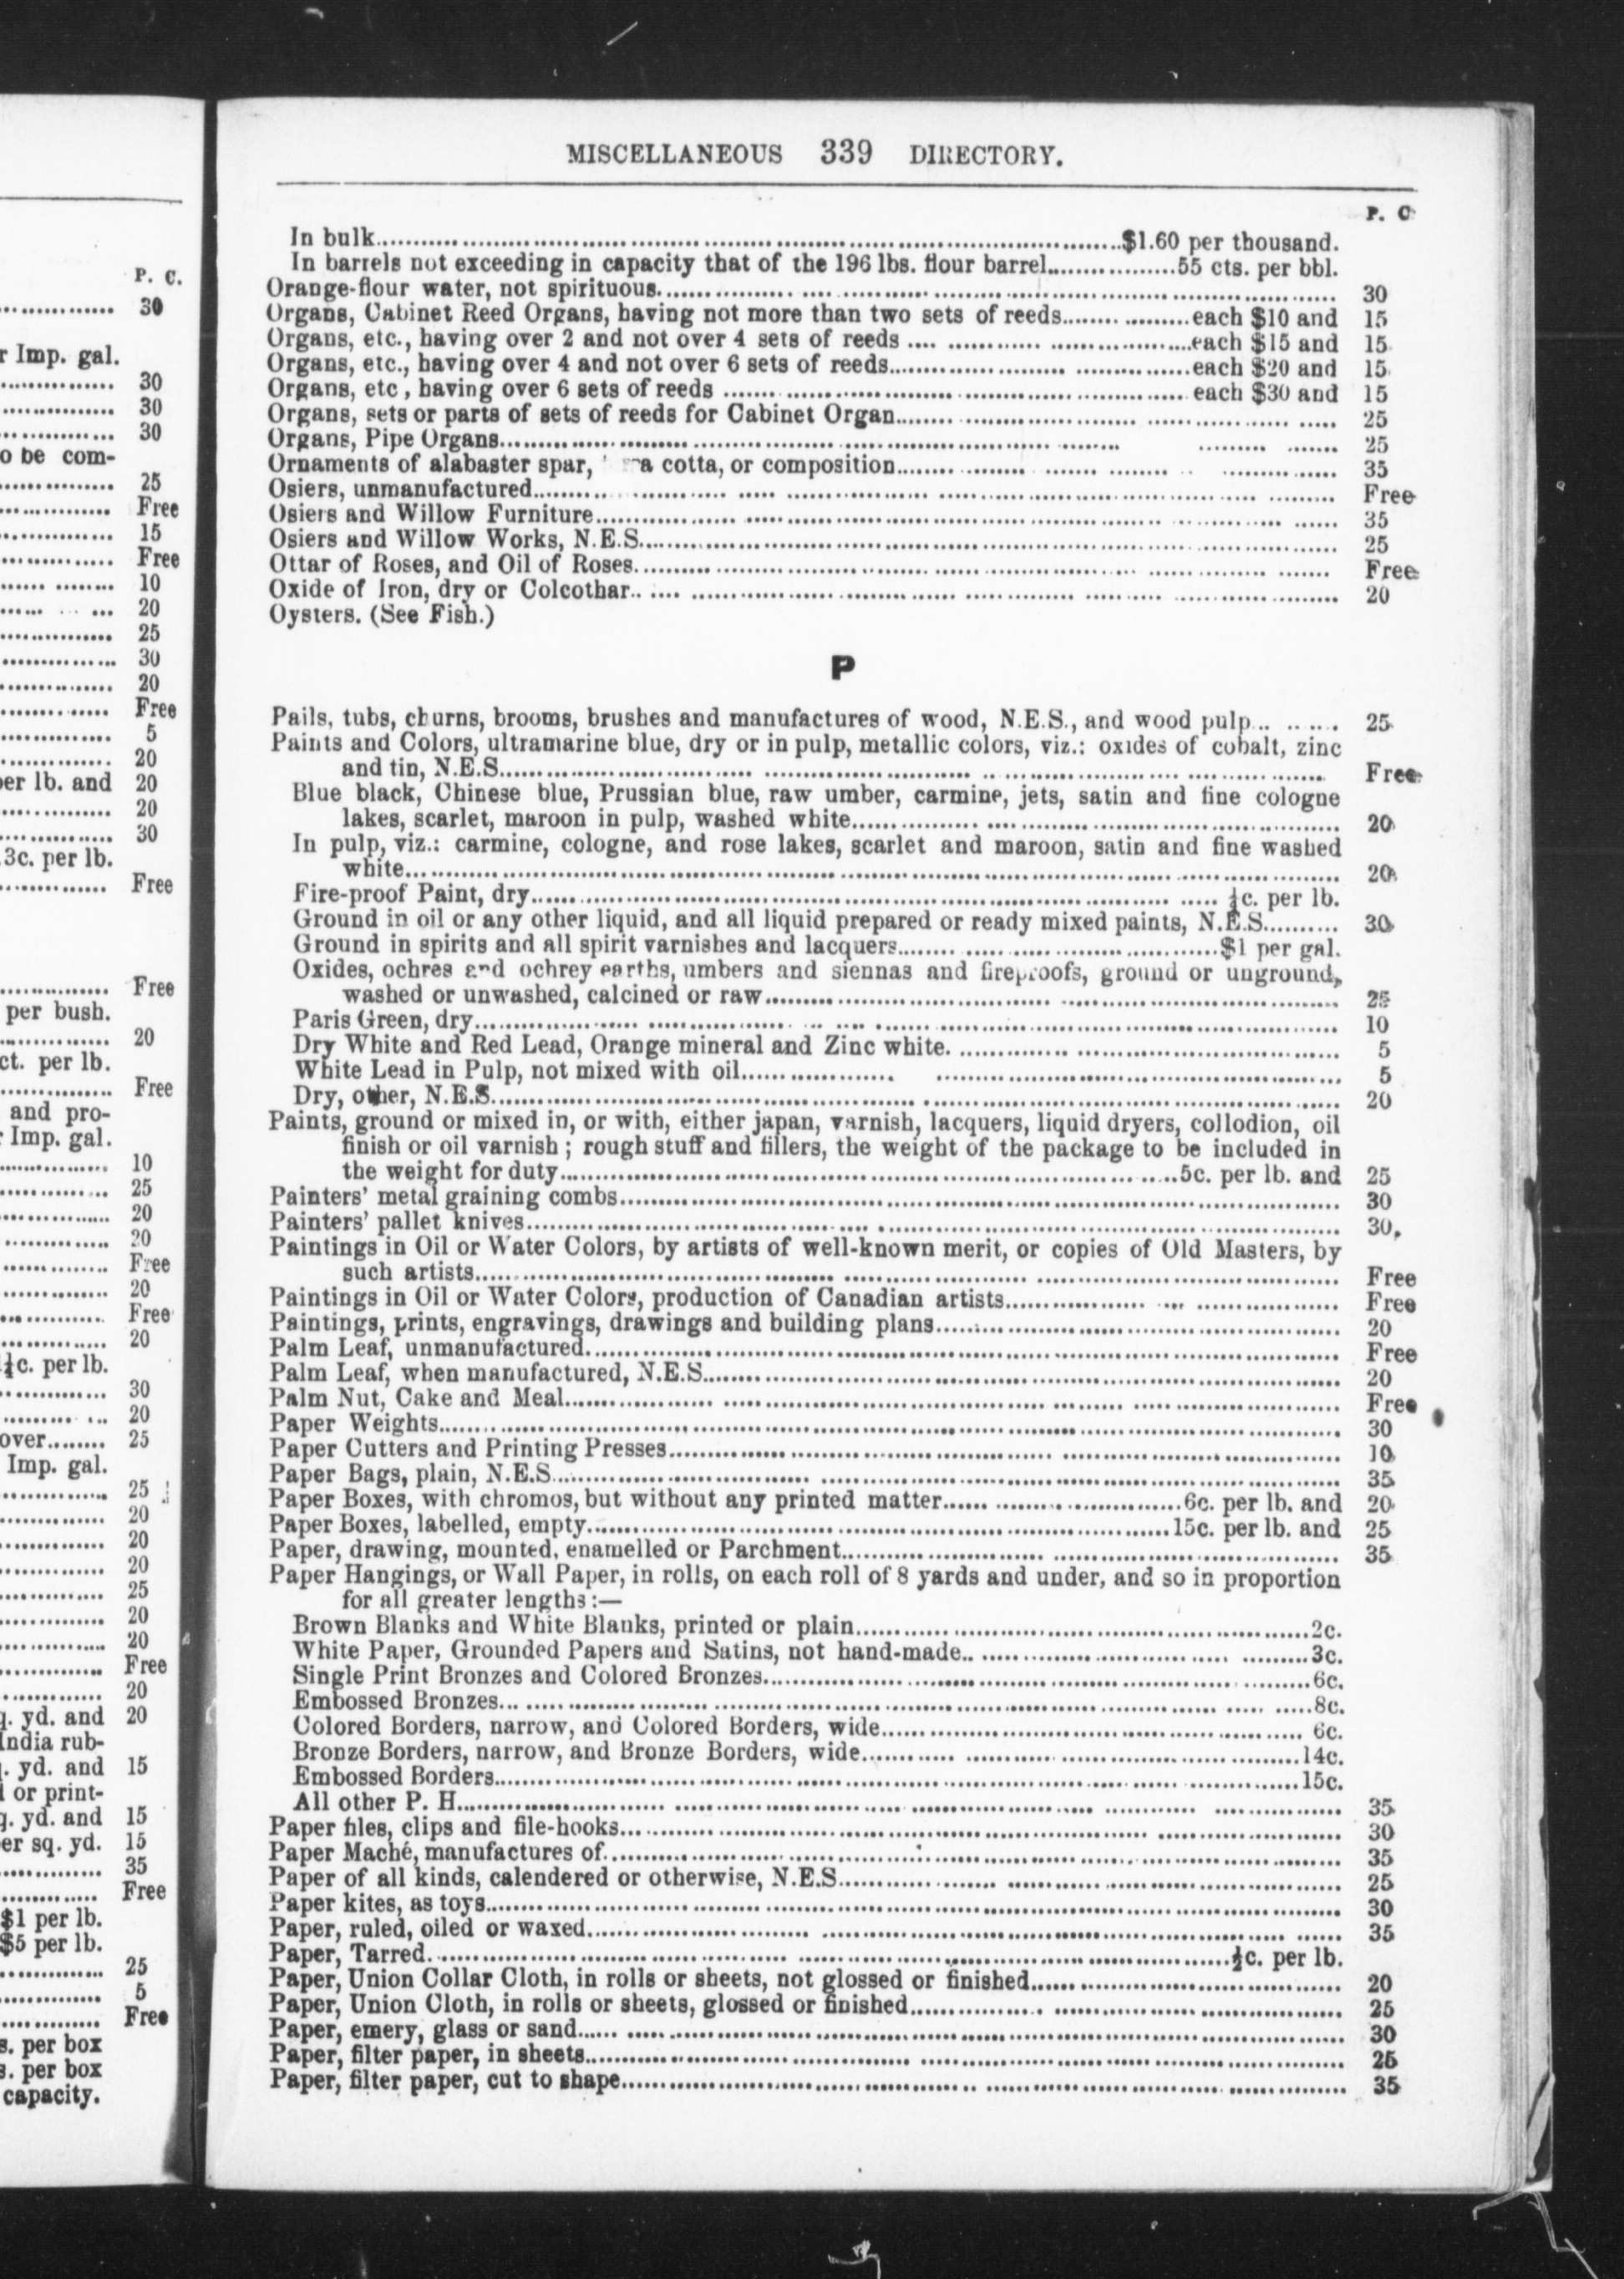 P. C.
30
r Imp. gal.
30
30
30
o be com-
25
Free
15
Free
10
20
25
30
20
Free
5
20
er lb. and 20
20
30
3c. per lb.
Free
Free
per bush.
20
ct. per lb.
Free
and pro-
Imp. gal.
10
25
20
20
Free
20
Free
20
¼c. per lb.
30
20
over........ 25
Imp. gal.
25
20
20
20
25
20
20
Free
20
q. yd. and 20
India rub-
. yd. and 15
or print-
q. yd. and 15
er sq. yd. 15
35
Free
$1 per lb.
$5 per lb.
25
5
Free
s. per box
s. per box
capacity.
MISCELLANEOUS 339 DIRECTORY.
P. C
In bulk........$1.60 per thousand.
In barrels not exceeding in capacity that of the 196 lbs. flour barrel........55 cts. per bbl.
Orange-flour water, not spirituous........ 30
Organs, Cabinet Reed Organs, having not more than two sets of reeds........each $10 and 15
Organs, etc., having over 2 and not over 4 sets of reeds ........each $15 and 15
Organs, etc., having over 4 and not over 6 sets of reeds........each $20 and 15
Organs, etc , having over 6 sets of reeds ........each $30 and 15
Organs, sets or parts of sets of reeds for Cabinet Organ........ 25
Organs, Pipe Organs........ 25
Ornaments of alabaster spar, a cotta, or composition........ 35
Osiers, unmanufactured........ Free
Osiers and Willow Furniture........ 35
Osiers and Willow Works, N.E.S........ 25
Ottar of Roses, and Oil of Roses........ Free
Oxide of Iron, dry or Colcothar........ 20
Oysters. (See Fish.)
P
Pails, tubs, churns, brooms, brushes and manufactures of wood, N.E.S., and wood pulp........ 25
Paints and Colors, ultramarine blue, dry or in pulp, metallic colors, viz.: oxides of cobalt, zinc
and tin, N.E.S........ Free
Blue black, Chinese blue, Prussian blue, raw umber, carmine, jets, satin and fine cologne
lakes, scarlet, maroon in pulp, washed white........ 20
In pulp, viz.: carmine, cologne, and rose lakes, scarlet and maroon, satin and fine washed
white........ 20
Fire-proof Paint, dry........ ¼c. per lb.
Ground in oil or any other liquid, and all liquid prepared or ready mixed paints, N.E.S........ 30
Ground in spirits and all spirit varnishes and lacquers........$1 per gal.
Oxides, ochres and ochrey earths, umbers and siennas and fireproofs, ground or unground,
washed or unwashed, calcined or raw........ 25
Paris Green, dry........ 10
Dry White and Red Lead, Orange mineral and Zinc white........ 5
White Lead in Pulp, not mixed with oil........ 5
Dry, other, N.E.S........ 20
Paints, ground or mixed in, or with, either japan, varnish, lacquers, liquid dryers, collodion, oil
finish or oil varnish ; rough stuff and fillers, the weight of the package to be included in
the weight for duty........5c. per lb. and 25
Painters' metal graining combs........ 30
Painters' pallet knives........ 30
Paintings in Oil or Water Colors, by artists of well-known merit, or copies of Old Masters, by
such artists........ Free
Paintings in Oil or Water Colors, production of Canadian artists........ Free
Paintings, prints, engravings, drawings and building plans........ 20
Palm Leaf, unmanufactured........ Free
Palm Leaf, when manufactured, N.E.S........ 20
Palm Nut, Cake and Meal........ Free
Paper Weights........ 30
Paper Cutters and Printing Presses........ 10
Paper Bags, plain, N.E.S........ 35
Paper Boxes, with chromos, but without any printed matter........6c. per lb. and 20
Paper Boxes, labelled, empty........15c. per lb. and 25
Paper, drawing, mounted, enamelled or Parchment........ 35
Paper Hangings, or Wall Paper, in rolls, on each roll of 8 yards and under, and so in proportion
for all greater lengths :—
Brown Blanks and White Blanks, printed or plain........2c.
White Paper, Grounded Papers and Satins, not hand-made........3c.
Single Print Bronzes and Colored Bronzes........6c.
Embossed Bronzes........8c.
Colored Borders, narrow, and Colored Borders, wide........ 6c.
Bronze Borders, narrow, and Bronze Borders, wide........14c.
Embossed Borders........15c.
All other P. H........ 35
Paper files, clips and file-hooks........ 30
Paper Maché, manufactures of........ 35
Paper of all kinds, calendered or otherwise, N.E.S........ 25
Paper kites, as toys........ 30
Paper, ruled, oiled or waxed........ 35
Paper, Tarred........½c. per lb.
Paper, Union Collar Cloth, in rolls or sheets, not glossed or finished........ 20
Paper, Union Cloth, in rolls or sheets, glossed or finished........ 25
Paper, emery, glass or sand........ 30
Paper, filter paper, in sheets........ 25
Paper, filter paper, cut to shape........ 35